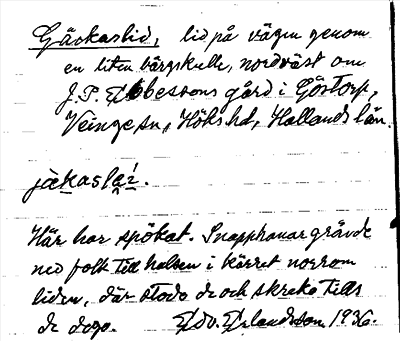 Gäckaslid, lid på vägen genom
en liten bärgskulle, nordväst om
J. P. Ebbesons gård i Göstorp,
Veinge sn, Höks hd, Hallands län.
jäkaslai.
Här har spökat. Snapphanar grävde
ned folk till halsen i kärret norrom
liden, där stodo de och skreko tills
de dogo. Edv. Erlandsson 1936.